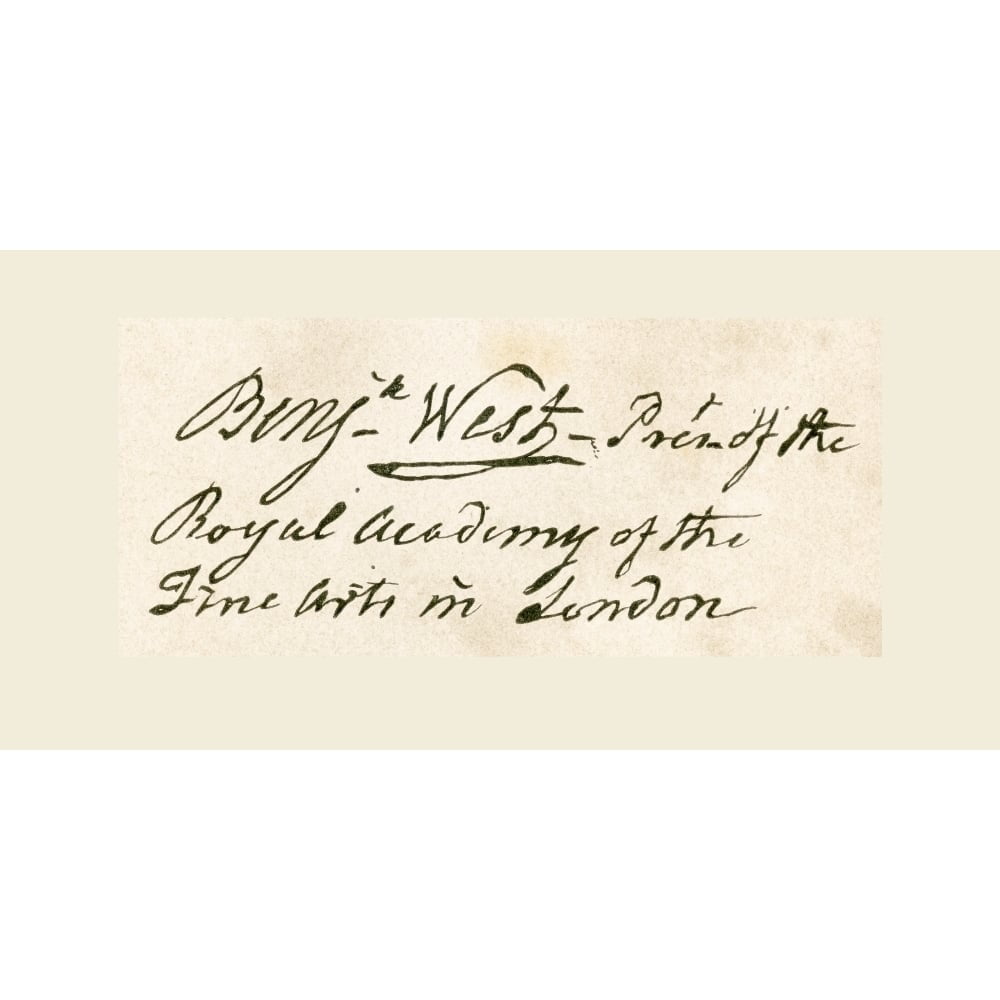 Benjn. West - Prest. of the
Royal Academy of the
Fine Arts in London